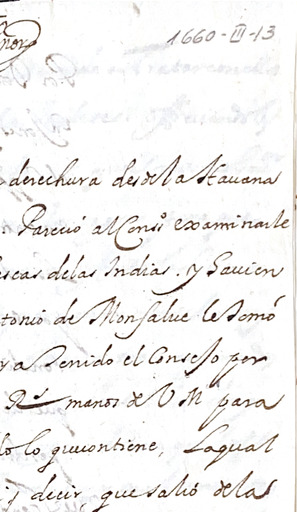 1660-III-13
derechura desde la Hauana
. Pareció al Consº examinarle
secas de las Indias. y hauien
tonio de Monsalue le tomó
y a Tenido el Consejo por
Rs manos de V M para
lo lo que contiene, Laqual
i) decir, que salió de las